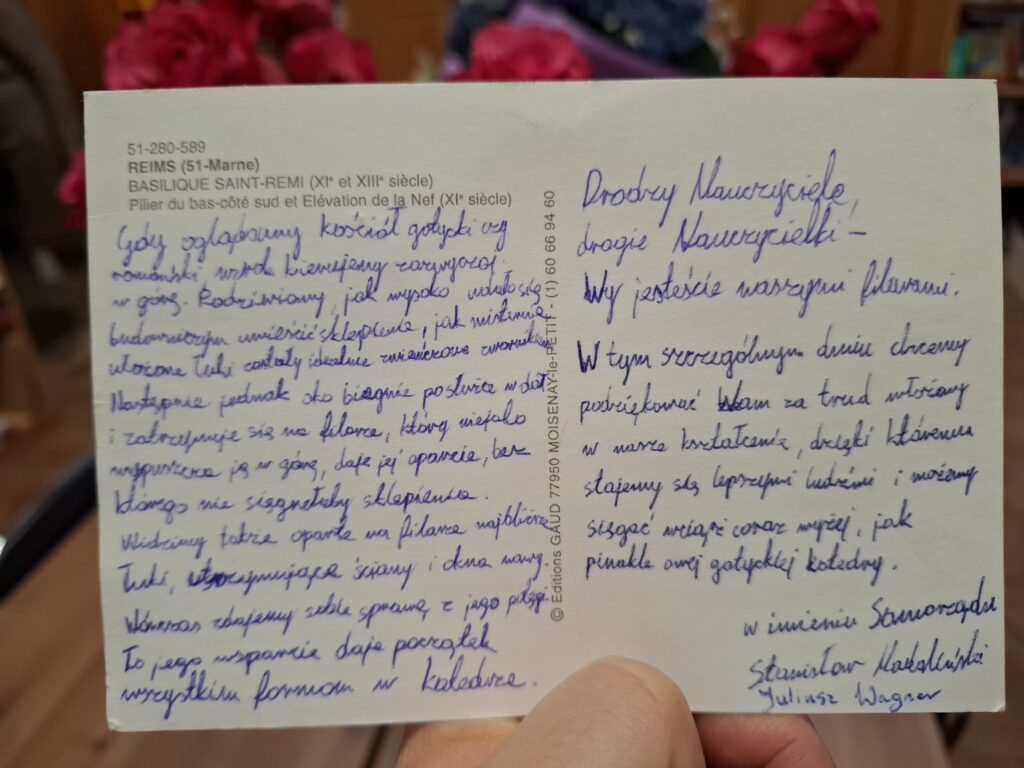 51-280-589
REIMS (51-Marne)
BASILIQUE SAINT-REMI (XIe et XIIIe siècle)
Pilier du bas-côté sud et Elévation de la Nef (XIe siècle)
Gdy oglądamy kościół gotycki czy
romański, wzrok kierujemy zazwyczaj
w górę. Podziwiamy, jak wysoko udało się
budowniczym umieścić sklepienie, jak misternie
ułożone łuki zostały idealnie zwieńczone zwornikiem.
Następnie jednak oko biegnie po służce w dół
i zatrzymuje się na filarze, który niejako
wypuszcza ją w górę, daje jej oparcie, bez
którego nie sięgnęłaby sklepienia.
Widzimy także oparte na filarze najbliższe
łuki, utrzymujące ściany i okna nawy.
Wówczas zdajemy sobie sprawę z jego potęgi.
To jego wsparcie daje początek
wszystkim formom w katedrze.
© Editions GAUD 77950 MOISENAY-le-PETIT - (1) 60 66 94 60
Drodzy Nauczyciele,
drogie Nauczycielki –
Wy jesteście naszymi filarami.
W tym szczególnym dniu chcemy
podziękować Wam za trud włożony
w nasze kształcenie, dzięki któremu
stajemy się lepszymi ludźmi i możemy
sięgać wciąż coraz wyżej, jak
pinakle owej gotyckiej katedry.
w imieniu Samorządu
Stanisław
Juliusz Wagner